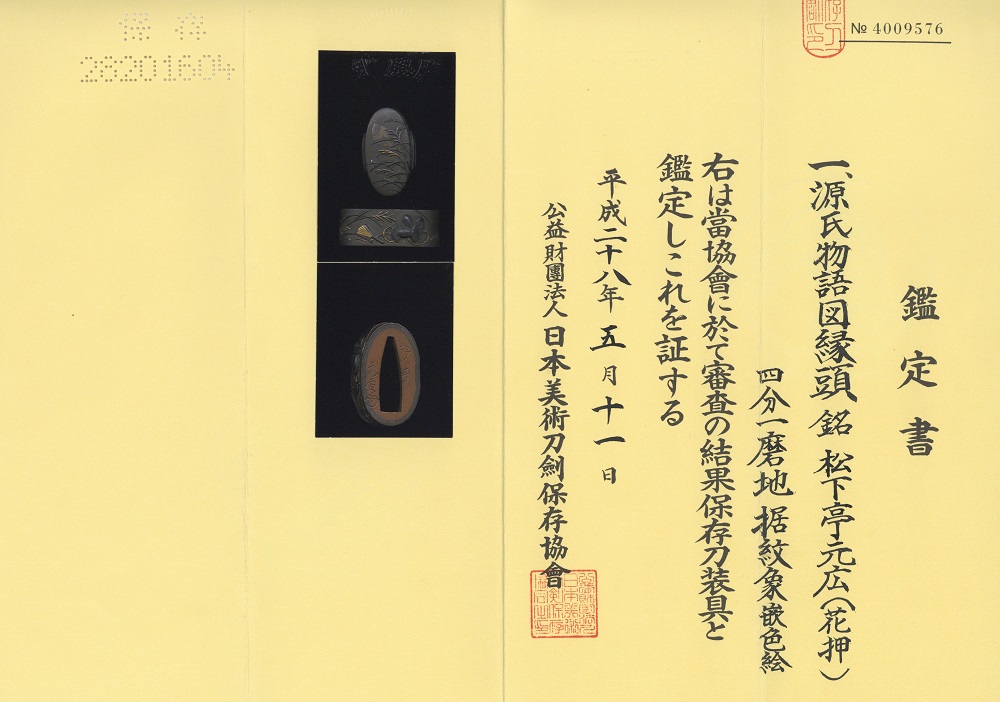 № 4009576
鑑定書
一、源氏物語図縁頭 銘 松下亭元広(花押)
四分一磨地 据紋象嵌色絵
右は當協會に於て審査の結果保存刀装具と
鑑定しこれを証する
平成二十八年五月十一日
公益財團法人 日本美術刀劍保存協會
保存
28201604